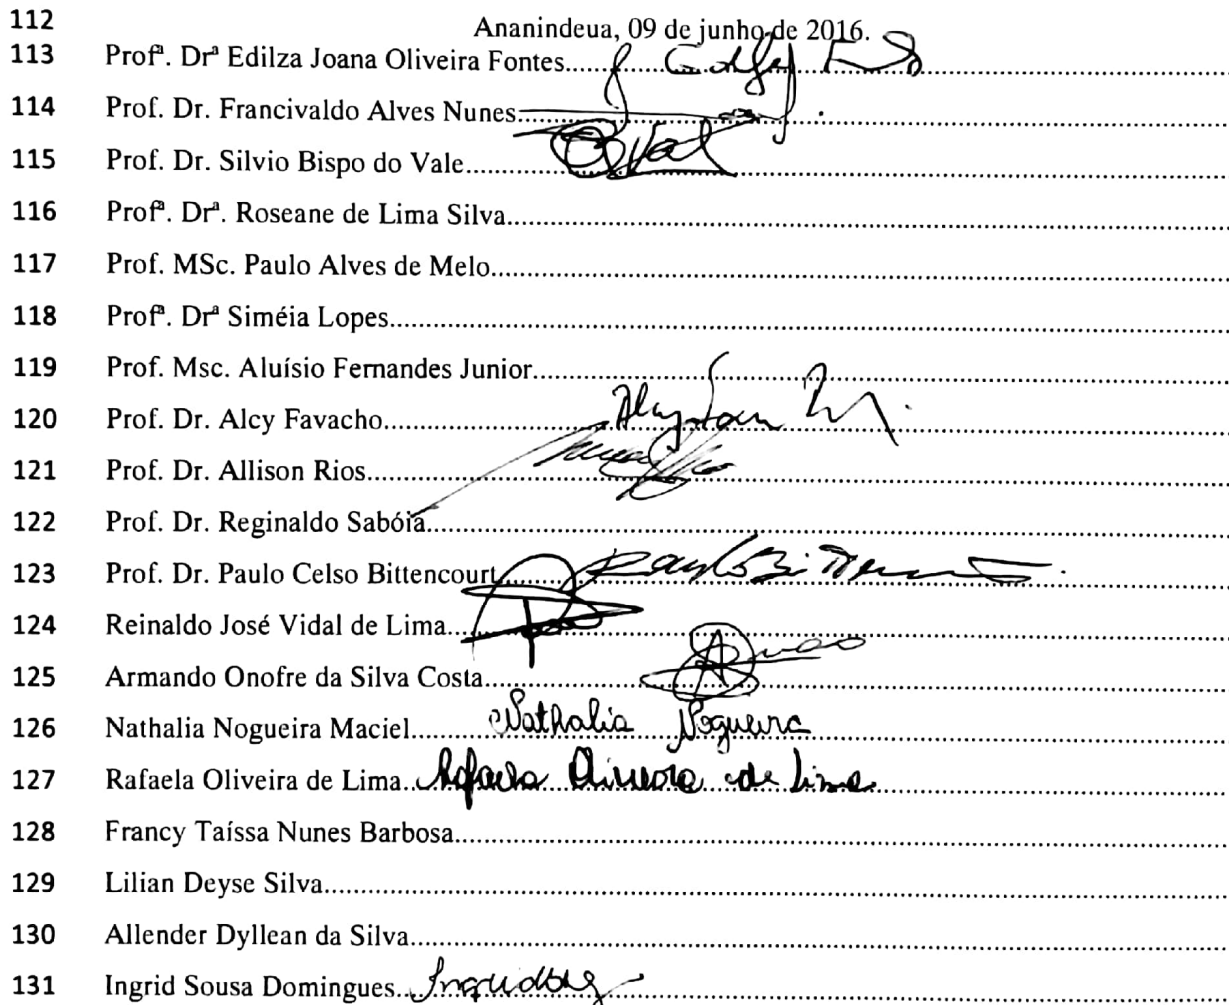 112 Ananindeua, 09 de junho de 2016.
113 Profª. Drª Edilza Joana Oliveira Fontes
114 Prof. Dr. Francivaldo Alves Nunes
115 Prof. Dr. Silvio Bispo do Vale
116 Profª. Drª. Roseane de Lima Silva
117 Prof. MSc. Paulo Alves de Melo
118 Profª. Drª Siméia Lopes
119 Prof. Msc. Aluísio Fernandes Junior
120 Prof. Dr. Alcy Favacho
121 Prof. Dr. Allison Rios
122 Prof. Dr. Reginaldo Sabóia
123 Prof. Dr. Paulo Celso Bittencourt
124 Reinaldo José Vidal de Lima
125 Armando Onofre da Silva Costa
126 Nathalia Nogueira Maciel Nathalia Nogueira
127 Rafaela Oliveira de Lima Rafaela Oliveira de Lima
128 Francy Taíssa Nunes Barbosa
129 Lilian Deyse Silva
130 Allender Dyllean da Silva
131 Ingrid Sousa Domingues